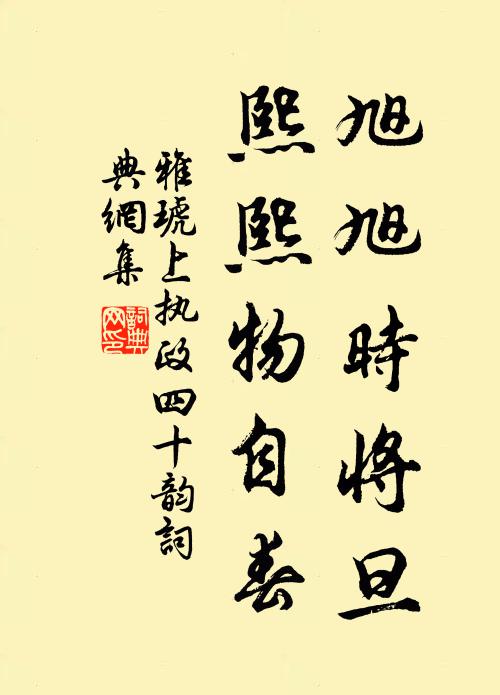 旭旭時將旦
熙熙物自春
雅琥上执政四十韵詞
典網集
詞典
网印